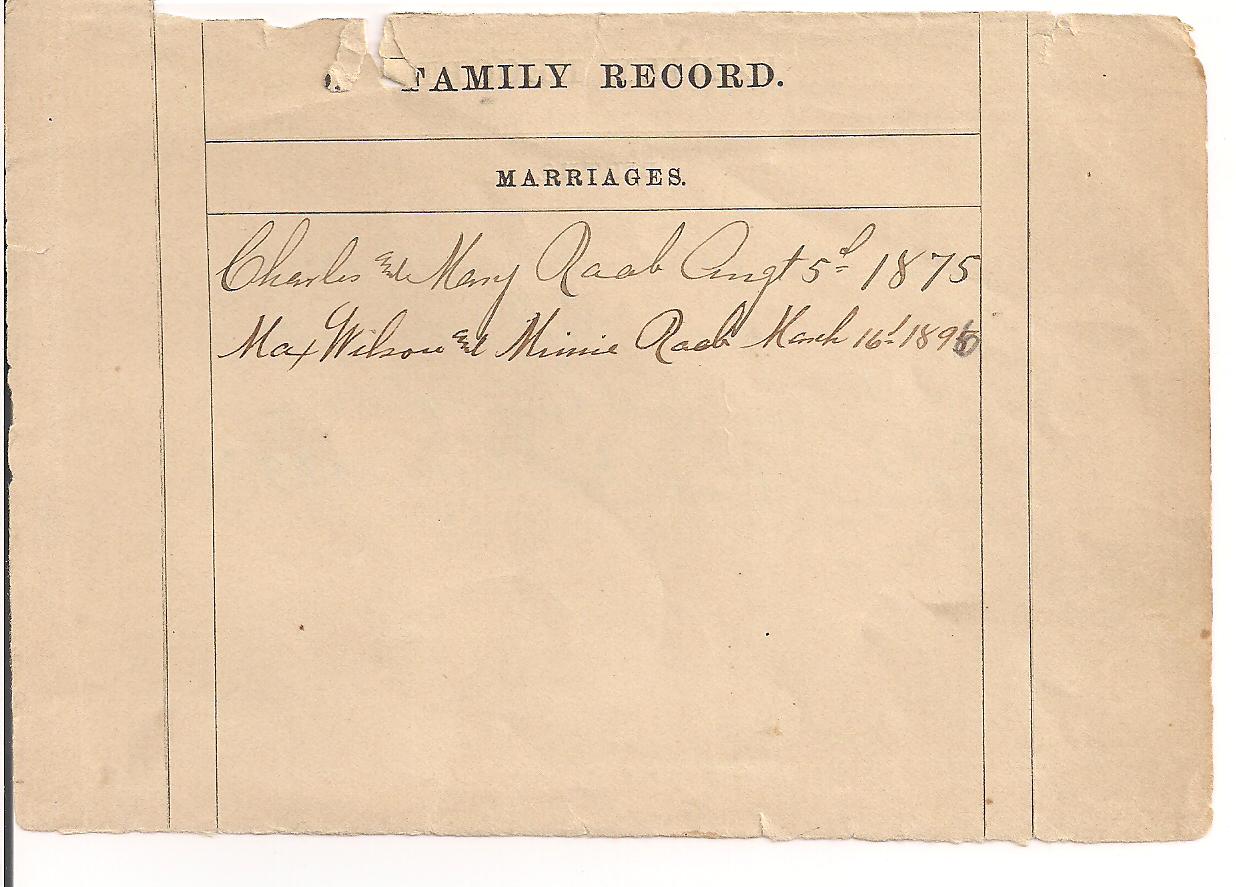 FAMILY RECORD.
MARRIAGES.
Charles and Mary Raab Augt 5d 1875
Max Wilson and Minnie Raab March 16d 1896